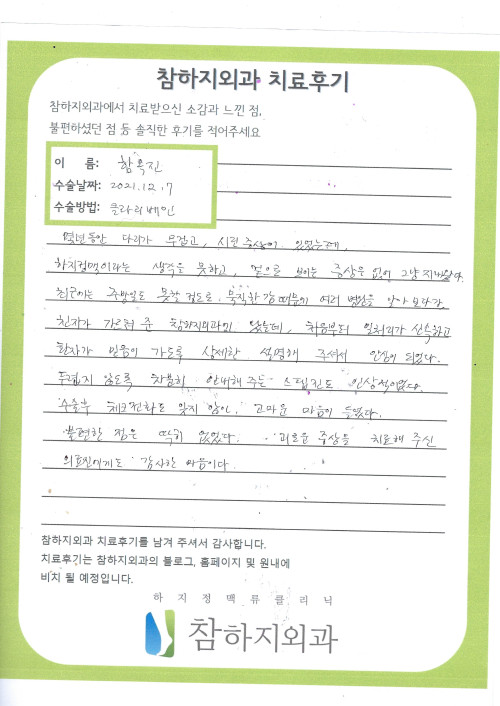 참하지외과 치료후기
참하지외과에서 치료받으신 소감과 느낀 점,
불편하셨던 점 등 솔직한 후기를 적어주세요
이 름: 함옥진
수술날짜: 2021.12.7
수술방법: 클라리베인
몇년동안 다리가 무겁고, 시린 증상이 있었는데,
하지정맥이라는 생각을 못하고, 겉으로 보이는 증상은 없어 그냥 지나갔다.
최근에는 주방일도 못할 정도로 묵직한 감 때문에 여러 병원을 알아보다가,
친구가 가르쳐 준 참하지외과에 왔는데, 처음부터 일처리가 신속하고
환자가 믿음이 가도록 상세한 설명해 주셔서 안심이 되었다.
두렵지 않도록 차분히 안내해 주는 스텝진도 인상적이었다.
수술후 체크전화도 잊지 않아, 고마운 마음이 들었다.
불편한 점은 딱히 없었다. 괴로운 증상을 치료해 주신
의료진에게도 감사한 마음이다.
참하지외과 치료후기를 남겨 주셔서 감사합니다.
치료후기는 참하지외과의 블로그, 홈페이지 및 원내에
비치 될 예정입니다.
하지정맥류클리닉
참하지외과